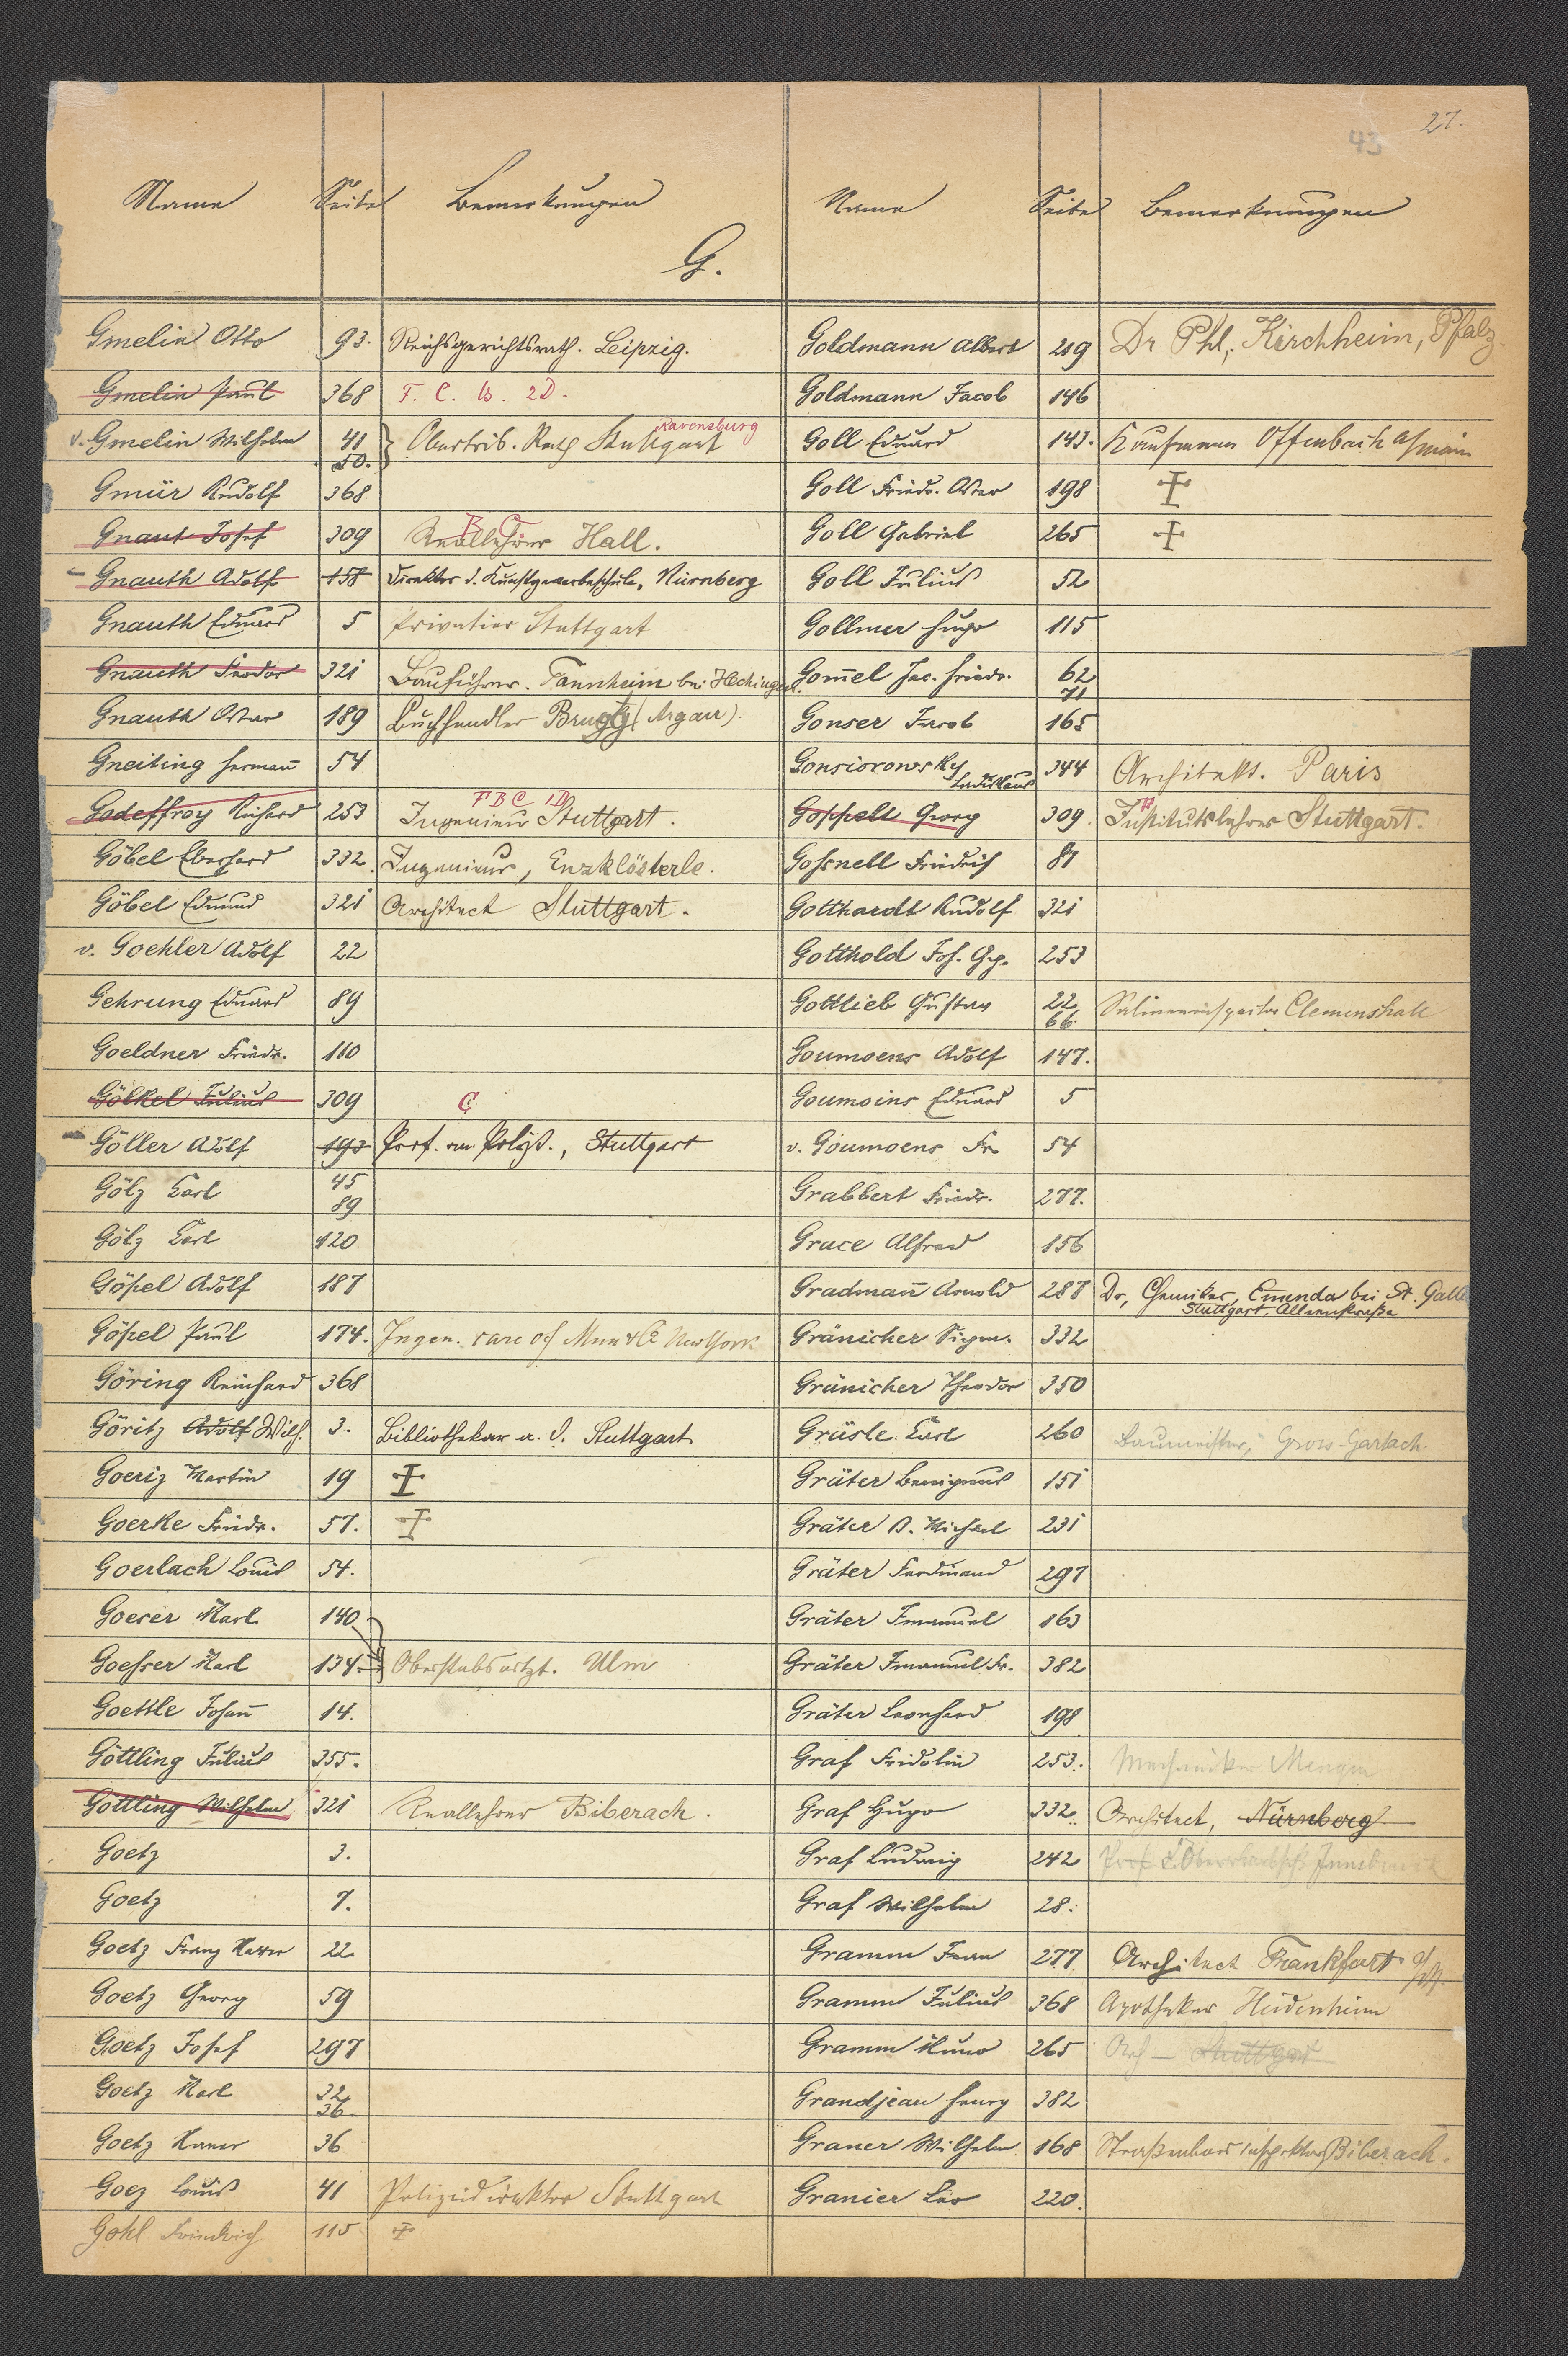 27.
43
Name Seite Bemerkungen
Name Seite Bemerkungen
G.
Gmelin Otto 93. Reichsgerichtsrath. Leipzig.
Gmelin Paul 368 F. C. B. 2D.
Ravensburg
v. Gmelin Wilhelm 41 Obertrib. Rath Stuttgart
50.
Gmür Rudolf 368
B C
Gnant Josef 309 Reallehrer Hall.
Gnauth Adolf 158 Direktor d. Kunstgewerbeschule, Nürnberg
Gnauth Eduard 5 Privatier Stuttgart
Gnauth Feodor 321 Bauführer. Tannheim bei Hechingen.
Gnauth Oskar 189 Buchhändler Brugg (Argau).
Gneiting Herman̄ 54
F B C 1D
Godeffroy Richard 253 Ingenieur Stuttgart.
Göbel Eberhard 332. Ingenieur, Enzklösterle.
Göbel Eduard 321 Architect Stuttgart.
v. Goehler Adolf 22
Gehrung Eduard 89
Goeldner Friedr. 110
Gölkel Julius 309 C
Göller Adolf 193 Prof. am Polyt., Stuttgart
Gölz Carl 45
89
Gölz Carl 120
Göpel Adolf 187
Göpel Paul 174. Ingen. care of Mun & Co New York
Göring Reinhard 368
Göritz Adolf Wilh. 3. Bibliothekar a. D. Stuttgart
Goeriz Martin 19 ‡
Goerke Friedr. 57. ‡
Goerlach Louis 54.
Goeser Karl 140
Goesser Karl 134. Oberstabsarzt. Ulm
Goettle Johan̄ 14.
Göttling Julius 355.
Göttling Wilhelm 321 Reallehrer Biberach.
Goetz 3.
Goetz 7.
Goetz Franz Xaver 22
Goetz Georg 59
Goetz Josef 297
Goetz Karl 32
36
Goetz Xaver 36
Goez Louis 41 Polizeidirektor Stuttgart
Gohl Friedrich 115 ‡
Goldmann Albert 219 Dr Phl. Kirchheim, Pfalz
Goldmann Jacob 146
Goll Eduard 143. Kaufmann Offenbach a/main
Goll Friedr. Oskar 198 ‡
Goll Gabriel 265 ‡
Goll Julius 52
Gollmer Hugo 115
Gom̄el Jac. Friedr. 62
71
Gonser Jacob 165
Gonsiorowsky 344 Architekt. Paris
Ladislaus
Goppelt Georg 309. Institutslehrer Stuttgart.
Gossnell Friedrich 81
Gotthardt Rudolf 321
Gotthold Joh. Gg. 253
Gottlieb Gustav 22 Salineninspector Clemenshall
66.
Goumoens Adolf 147.
Goumoins Eduard 5
v. Goumoens Fr. 54
Grabbert Friedr. 277.
Grace Alfred 156
Gradman̄ Arnold 287 Dr, Chemiker, Emmda bei St. Galle
Stuttgart, Alleenstraße
Gränicher Sigm. 332
Gränicher Theodor 350
Gräsle Carl 260 Baumeister, Gross-Gartach
Gräter Benignus 151
Gräter B. Michael 231
Gräter Ferdinand 297
Gräter Immanuel 163
Gräter Imanuel Fr. 382
Gräter Leonhard 198
Graf Fridolin 253. Mechaniker Mengen
Graf Hugo 332. Architect, Nürnberg
Graf Ludwig 242 Prof.
Graf Wilhelm 28.
Gramm Jean 277 Architect Frankfurt a/M.
Gramm Julius 368 Apotheker Heidenheim
Gramm Kuno 265 Arch — Stuttgart
Grandjean Henry 382
Graner Wilhelm 168 Straßenbauinspektor Biberach.
Granier Leo 220.